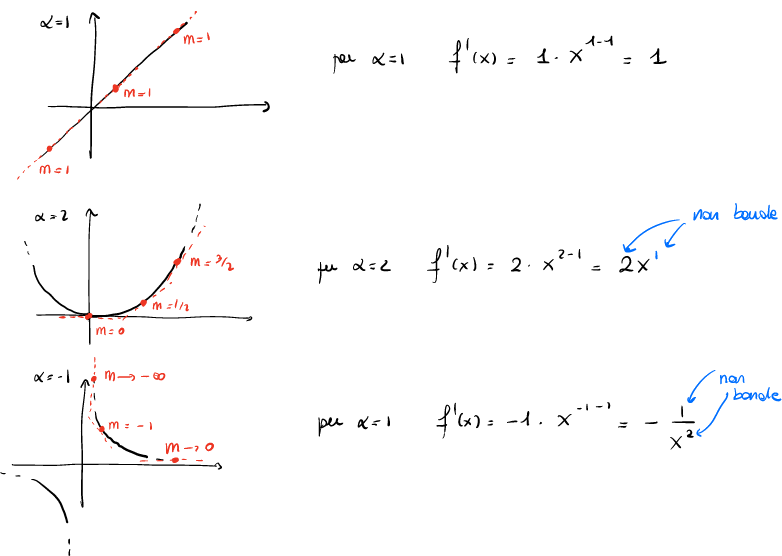 α=1
m=1
m=1
m=1
per α=1 f'(x) = 1 · x^{1-1} = 1
α=2
m=3/2
m=1/2
m=0
per α=2 f'(x) = 2 · x^{2-1} = 2x^1
non banale
α=-1
m→-∞
m=-1
m→0
per α=1 f'(x) = -1 · x^{-1-1} = - 1/x^2
non
banale